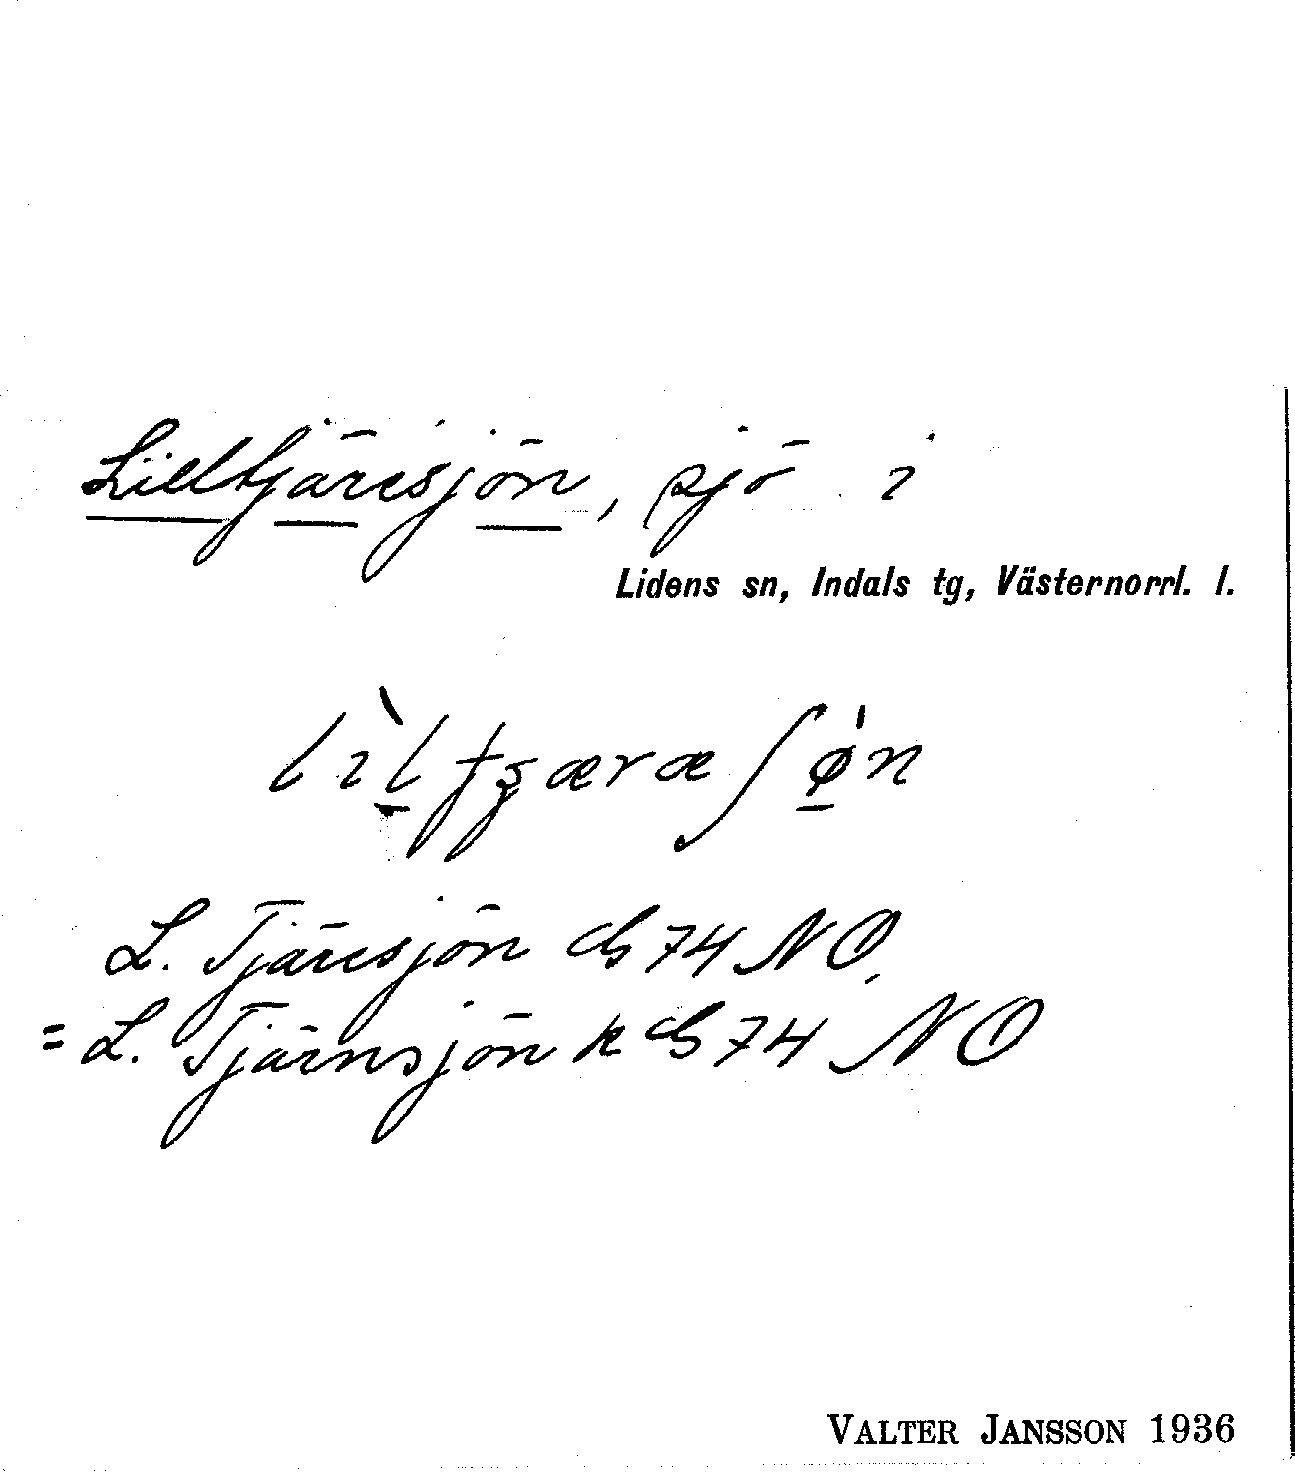 Lilltjäresjön, sjö i
Lidens sn, Indals tg, Västernorrl. l.
lìltʒæræʃø̍n
L. Tjäresjön Gs 74 NO.
= L. Tjärnsjön k Gs 74 NO
VALTER JANSSON 1936